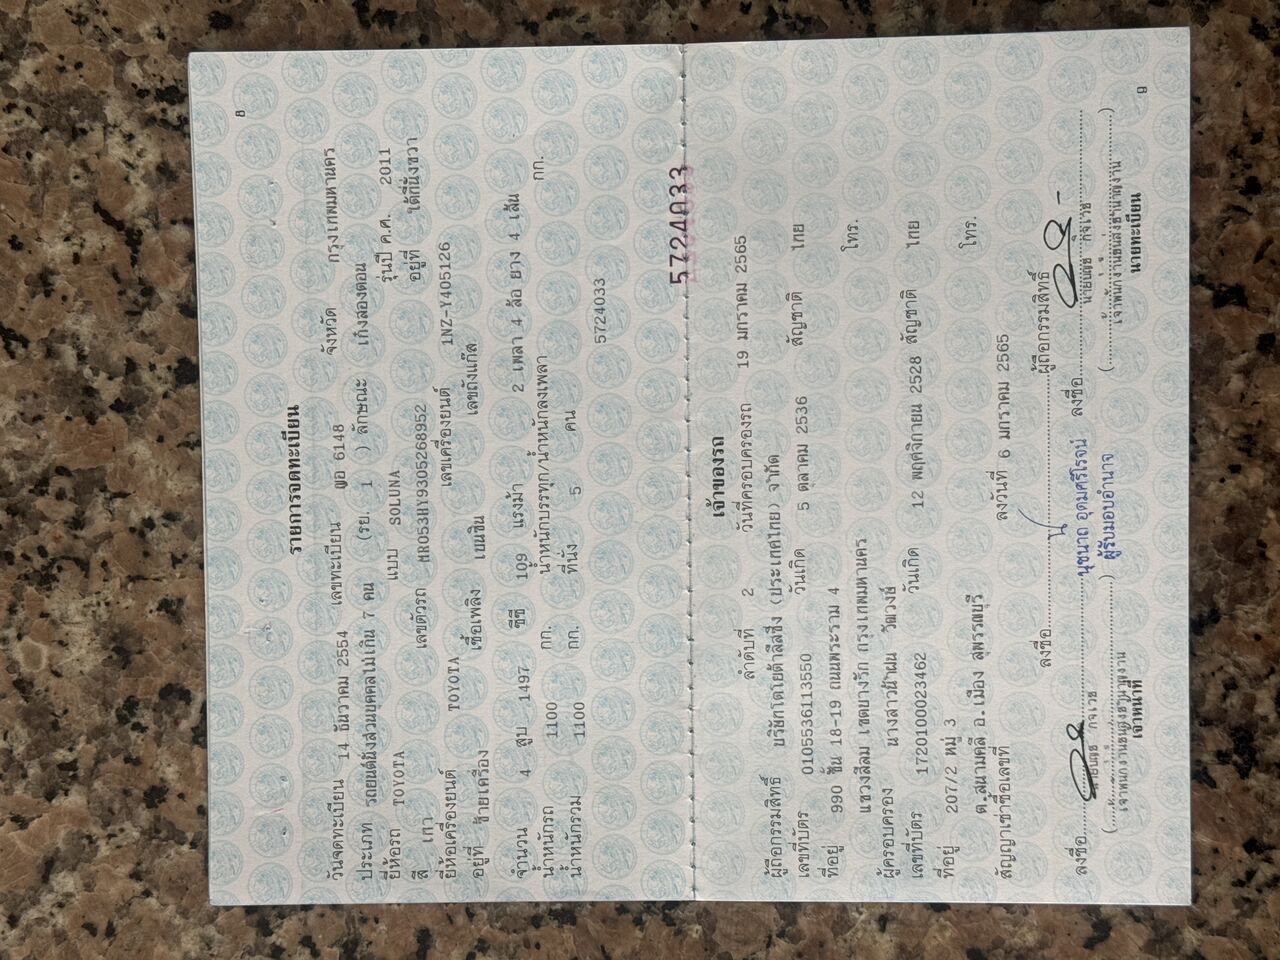 8
รายการจดทะเบียน
วันจดทะเบียน 14 ธันวาคม 2554 เลขทะเบียน ฎอ 6148 จังหวัด กรุงเทพมหานคร
ประเภท รถยนต์นั่งส่วนบุคคลไม่เกิน 7 คน (รย. 1 ) ลักษณะ เก๋งสองตอน
ยี่ห้อรถ TOYOTA แบบ SOLUNA รุ่นปี ค.ศ. 2011
สี เทา เลขตัวรถ MR053HY9305268952 อยู่ที่ ใต้ที่นั่งขวา
ยี่ห้อเครื่องยนต์ TOYOTA เลขเครื่องยนต์ 1NZ-Y405126
อยู่ที่ ซ้ายเครื่อง เชื้อเพลิง เบนซิน เลขถังแก๊ส
จำนวน 4 สูบ 1497 ซีซี 109 แรงม้า 2 เพลา 4 ล้อ ยาง 4 เส้น
น้ำหนักรถ 1100 กก. น้ำหนักบรรทุก/น้ำหนักลงเพลา กก.
น้ำหนักรวม 1100 กก. ที่นั่ง 5 คน
5724033
5724033
เจ้าของรถ
ลำดับที่ 2 วันที่ครอบครองรถ 19 มกราคม 2565
ผู้ถือกรรมสิทธิ์ บริษัทโตโยต้าลีสซิ่ง (ประเทศไทย) จำกัด
เลขที่บัตร 0105536113550 วันเกิด 5 ตุลาคม 2536 สัญชาติ ไทย
ที่อยู่ 990 ชั้น 18-19 ถนนพระราม 4
แขวงสีลม เขตบางรัก กรุงเทพมหานคร โทร.
ผู้ครอบครอง นางสาวน้ำฝน วัฒวงษ์
เลขที่บัตร 1720100023462 วันเกิด 12 พฤศจิกายน 2528 สัญชาติ ไทย
ที่อยู่ 207/2 หมู่ 3
ต.สนามคลี อ.เมือง สุพรรณบุรี โทร.
สัญญาเช่าซื้อเลขที่ ลงวันที่ 6 มกราคม 2565
ลงชื่อ ผู้ถือกรรมสิทธิ์
ลงชื่อ นุชนาถ อุดมศรีโรจน์ ลงชื่อ
ผู้รับมอบอำนาจ
เจ้าพนักงานขนส่งชำนาญงาน เจ้าพนักงานขนส่งชำนาญงาน
เจ้าหน้าที่ นายทะเบียน
9